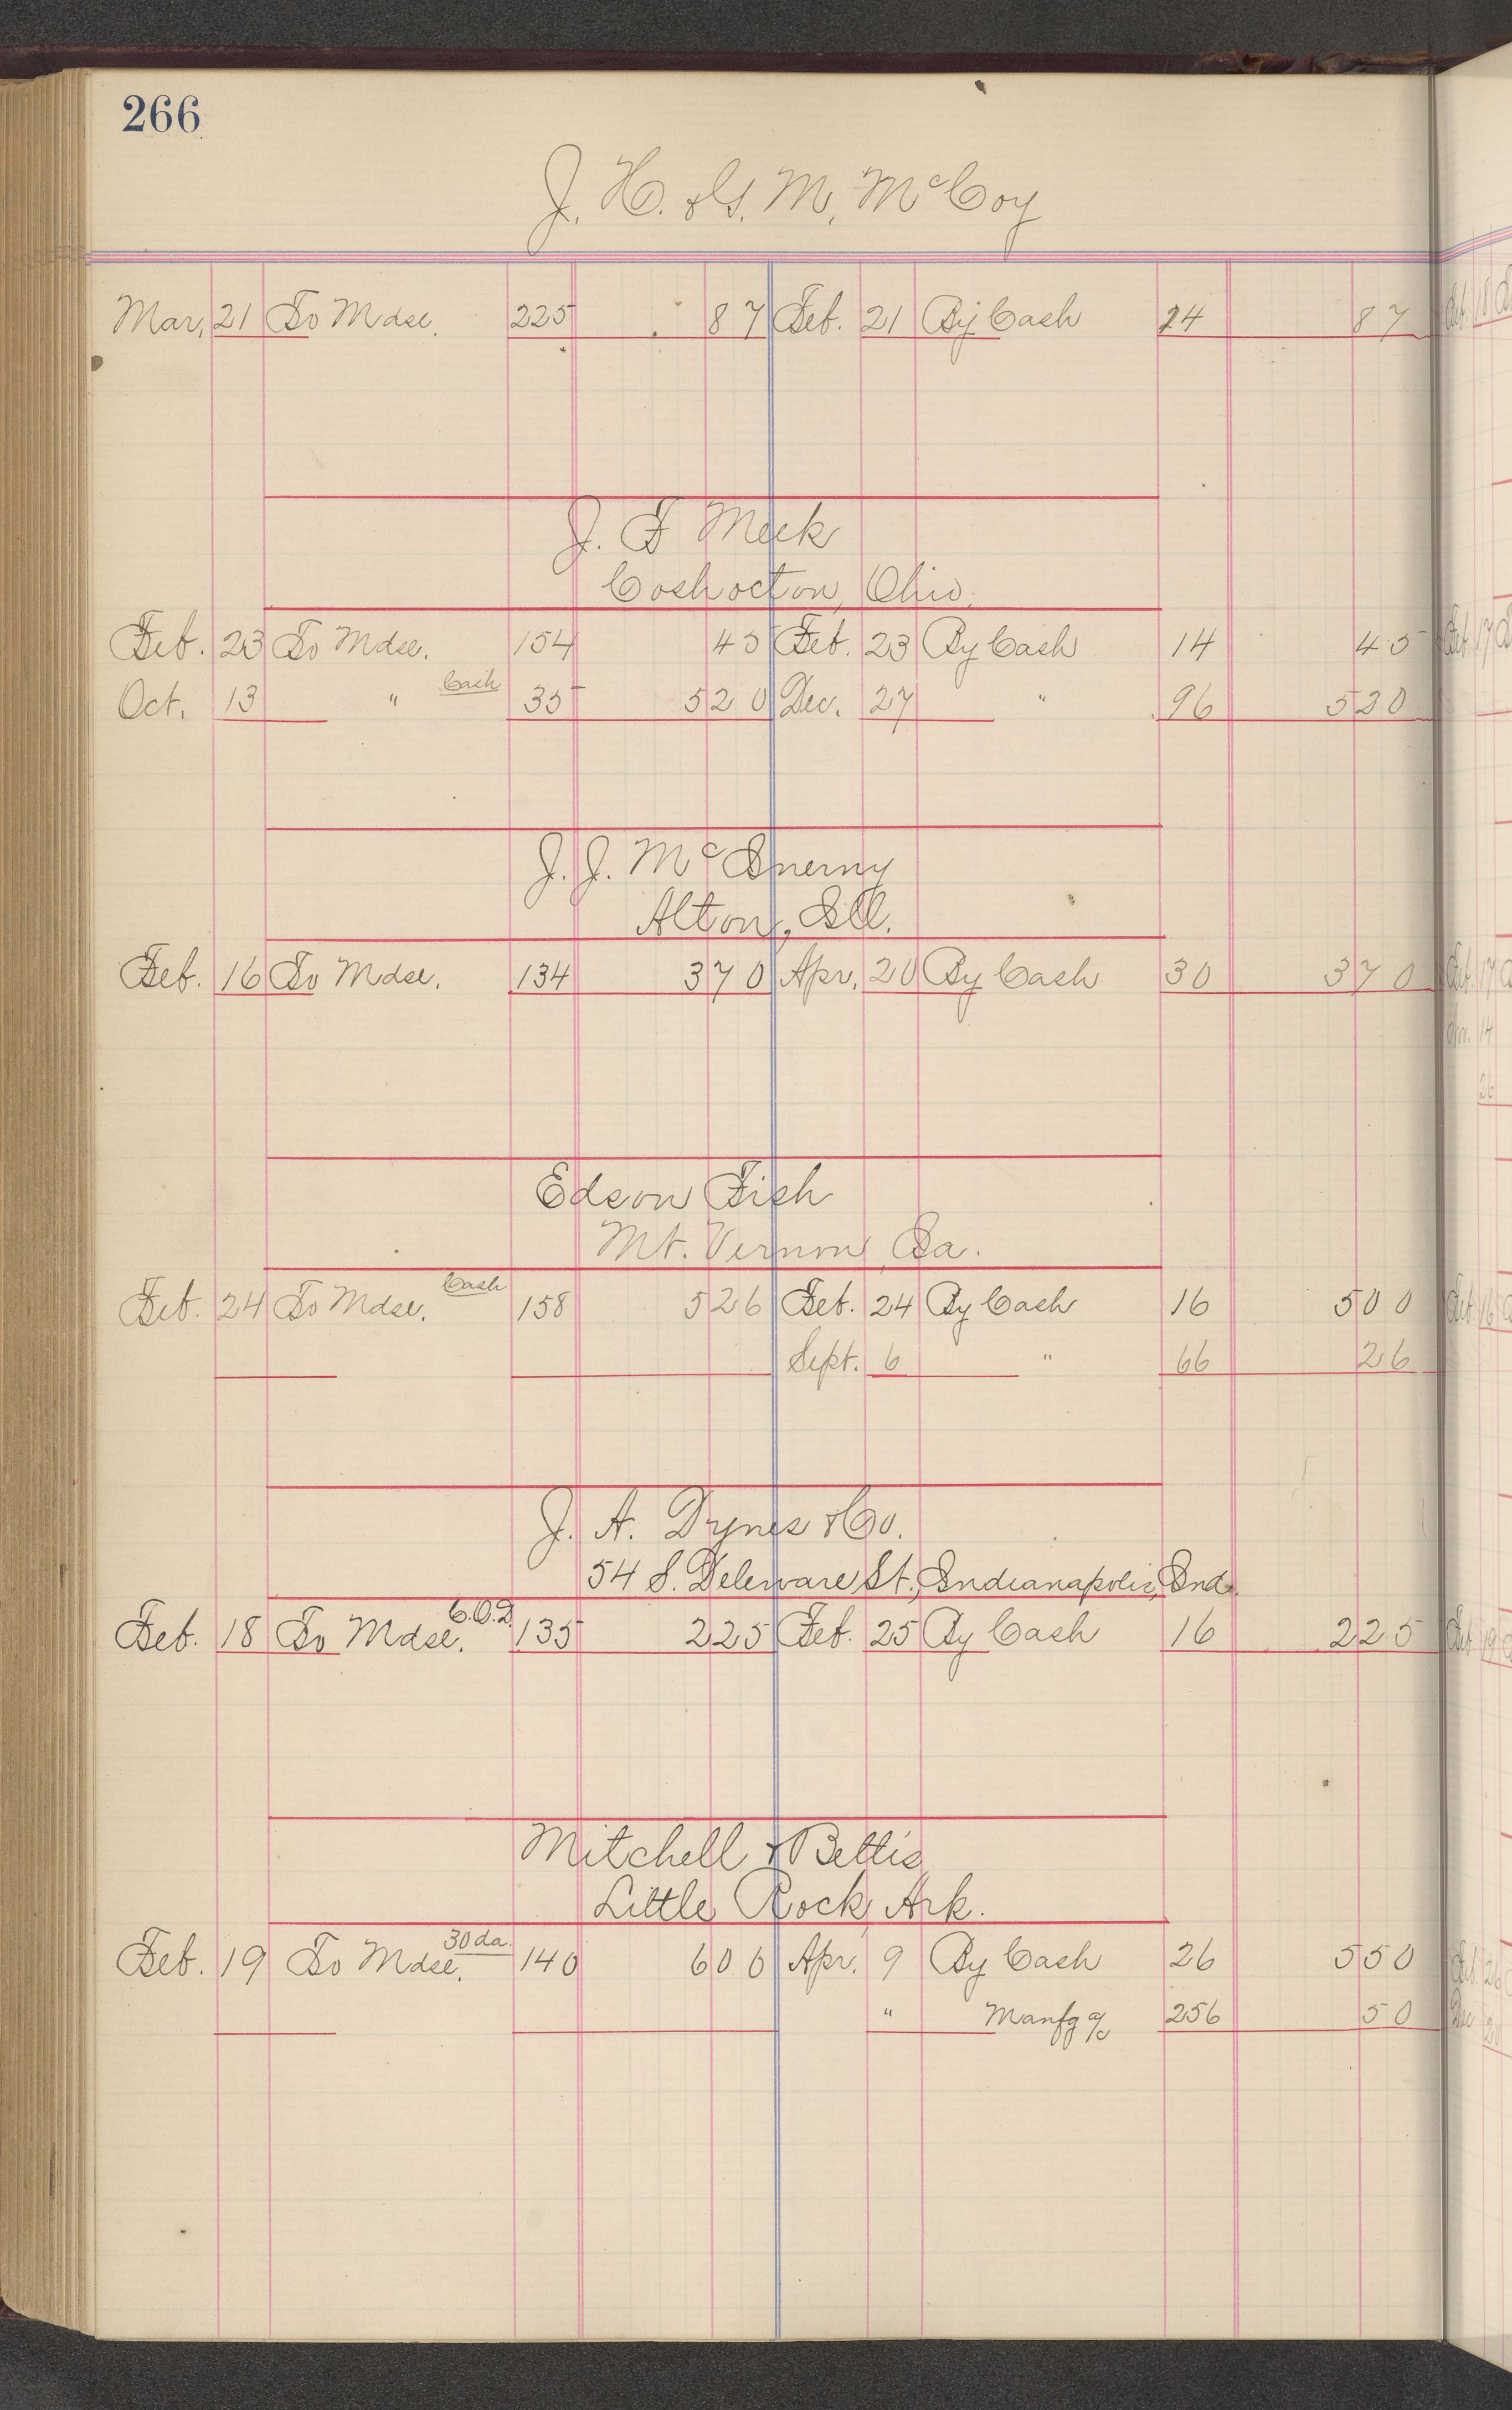 266
J. H. & G. M. McCoy
Mar. 21 To Mdse. 225 87 Feb. 21 By Cash 14 87
J. F Meek
Coshocton, Ohio.
Feb. 23 To Mdse. 154 45 Feb. 23 By Cash 14 45
Oct. 13 " Cash 35 520 Dec. 27 " 96 520
J. J. McInerny
Alton, Ill.
Feb. 16 To Mdse. 134 370 Apr. 20 By Cash 30 370
Edson Fish
Mt. Vernon, Ia.
Feb. 24 To Mdse. Cash 158 526 Feb. 24 By Cash 16 500
Sept. 6 " 66 26
J. A. Dynes & Co.
54 S. Deleware St., Indianapolis, Ind.
Feb. 18 To Mdse. C.O.D. 135 225 Feb. 25 By Cash 16 225
Mitchell & Bettis
Little Rock, Ark.
Feb. 19 To Mdse. 30 da. 140 600 Apr. 9 By Cash 26 550
" Manfg a/c 256 50